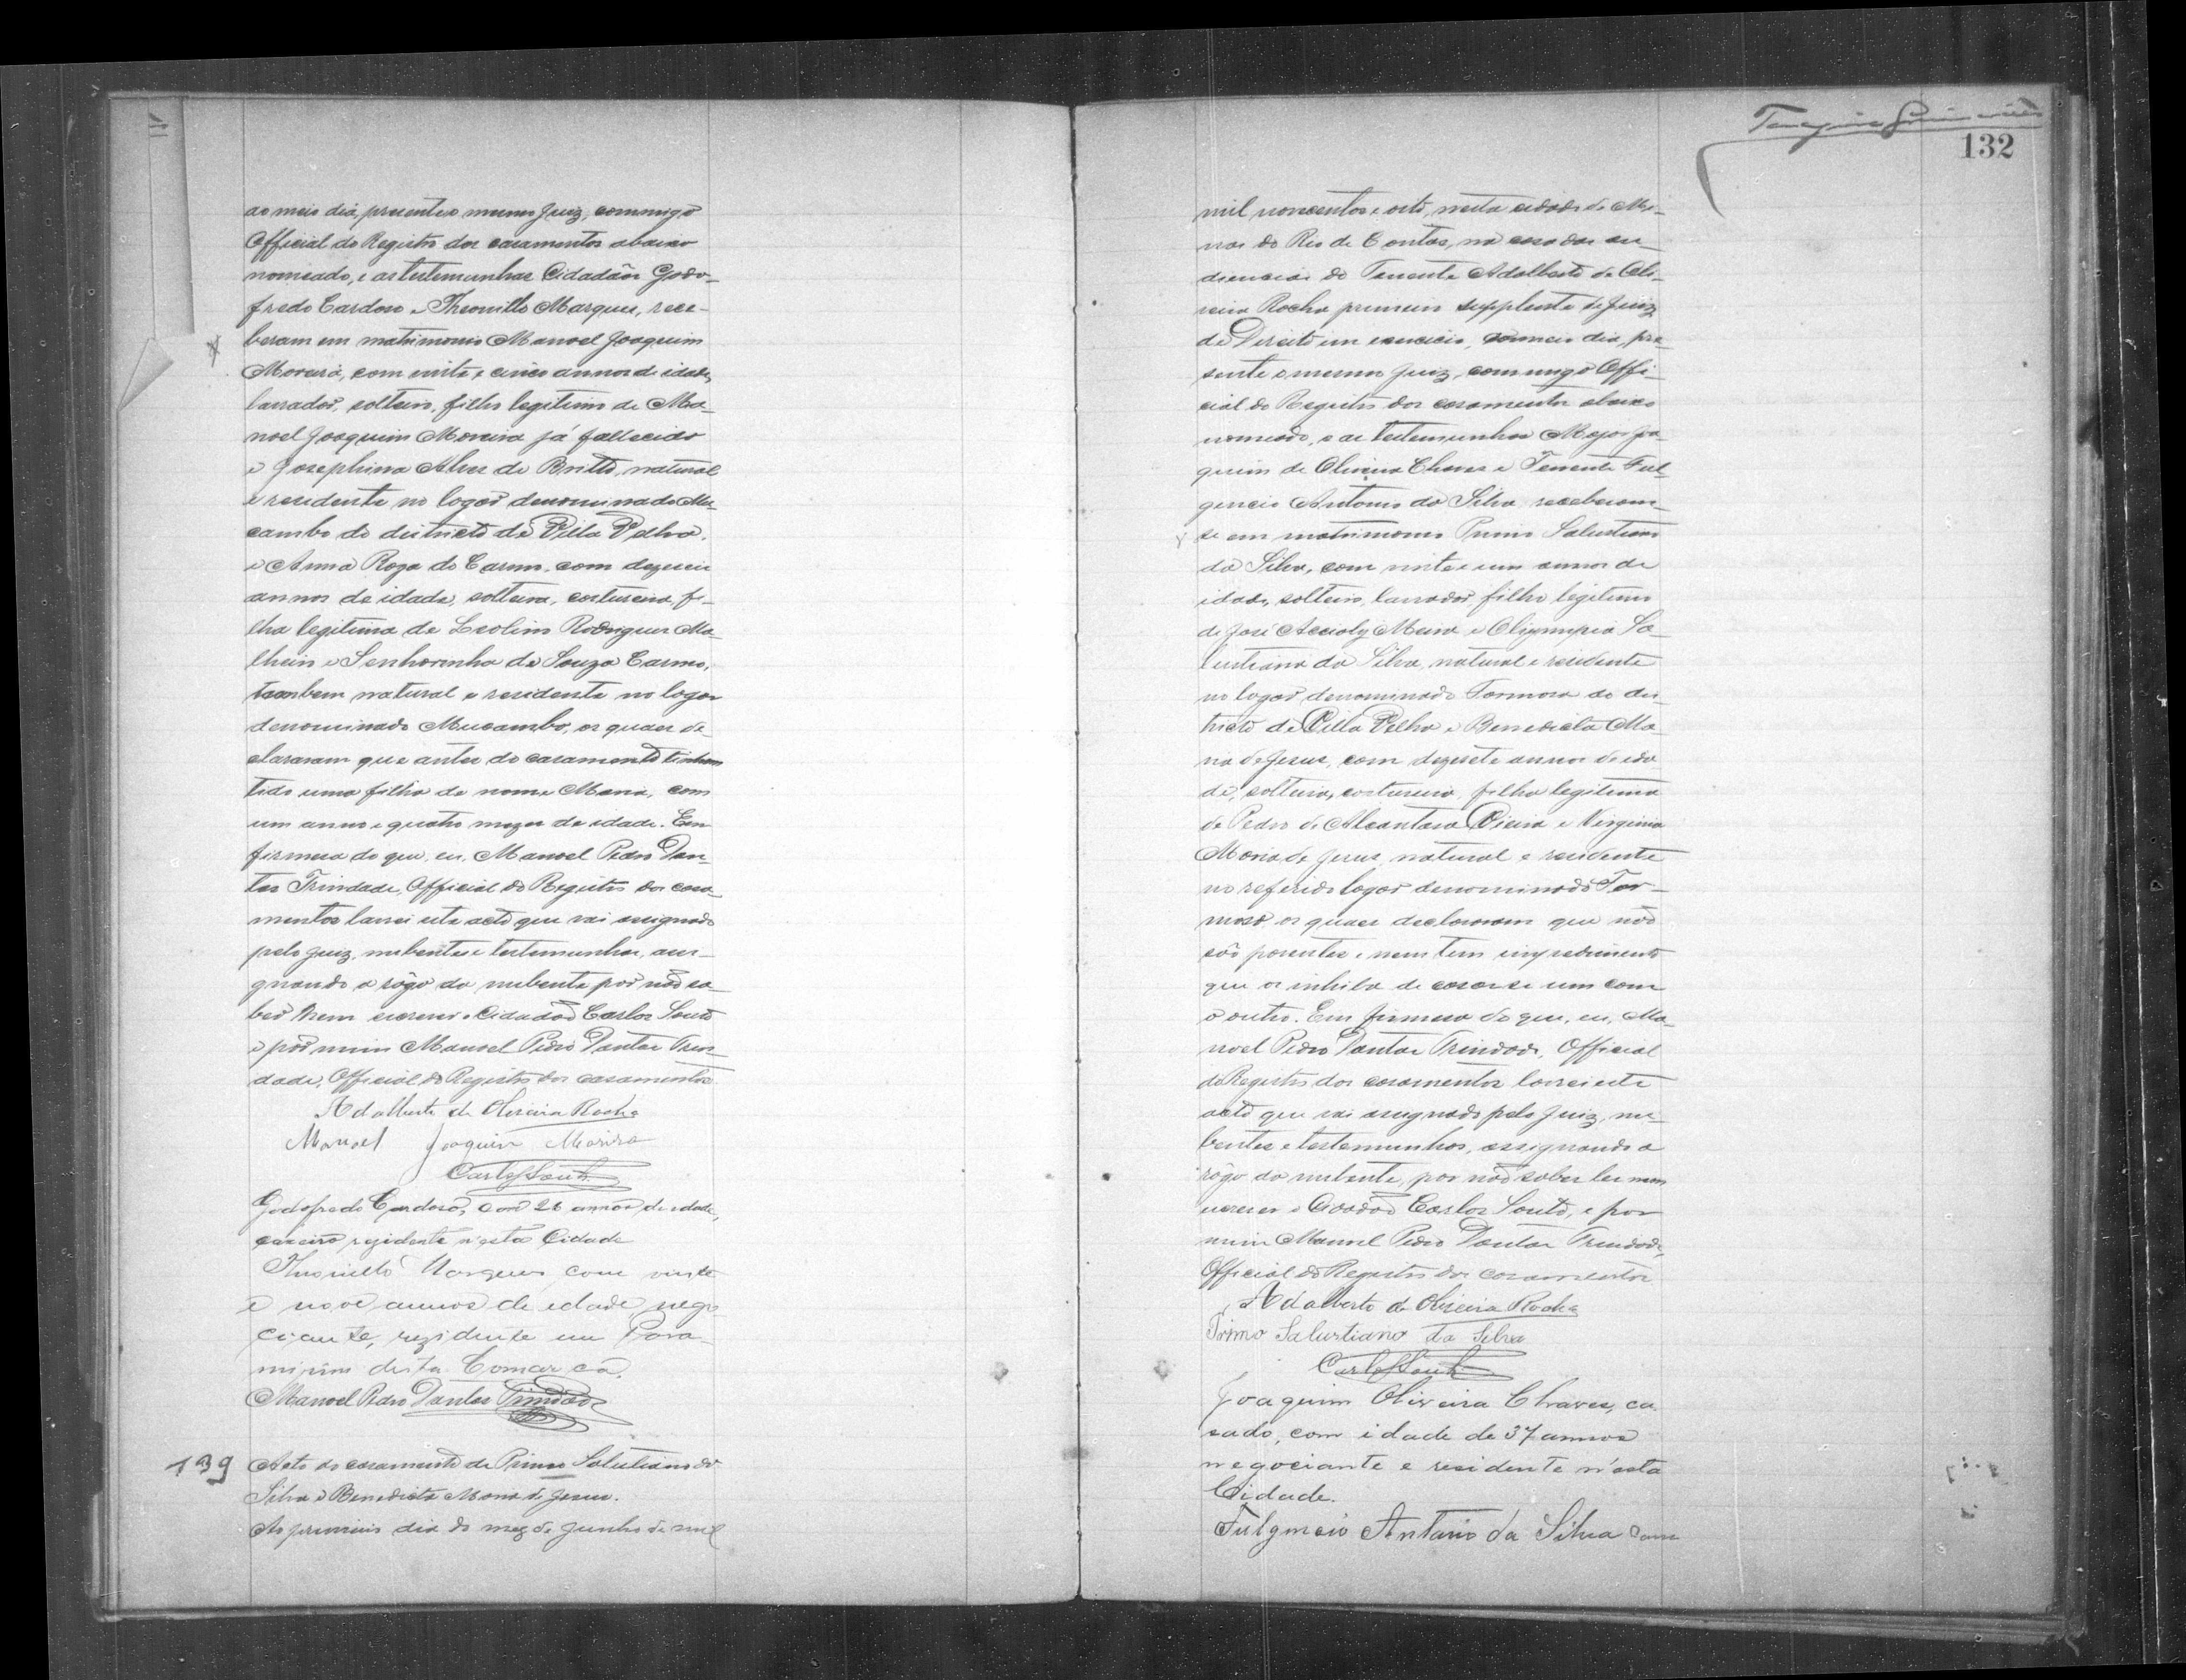 ao meio dia, presente o mesmo Juiz, commigo
Official do Registro dos casamentos abaixo
nomeado, e as testemunhas Cidadãos Godo-
fredo Cardoso e Theonillo Marques, rece-
beram em matrimonio Manoel Joaquim
Moreira, com vinte e cinco annos de idade,
lavrador, solteiro, filho legitimo de Ma-
noel Joaquim Moreira já fallecido
e Josephina Alves de Britto, natural
e residente no logar denominado Mu-
cambo do districto de Villa Velha,
e Anna Roza do Carmo, com dezeseis
annos de idade, solteira, costureira, fi-
lha legitima de Leolino Rodrigues Ma-
lheiro e Senhorinha de Souza Carmo,
tambem natural e residente no logar
denominado Mucambo, os quaes de-
clararam que antes do casamento tinham
tido uma filha de nome Maria, com
um anno e quatro mezes de idade. Em
firmesa do que, eu, Manoel Pedro Dan-
tas Trindade, Official do Registro dos casa-
mentos lavrei este acto que vai assignado
pelo Juiz, nubentes e testemunhas, assi-
gnando a rôgo da nubente por não sa-
ber ler nem escrever o Cidadão Carlos Souto
e por mim Manoel Pedro Dantas Trin-
dade, Official do Registro dos casamentos
Adalberto de Oliveira Rocha
Manoel Joaquim Moreira
Carlos Souto
Godofredo Cardoso, com 26 annos de idade,
caxeiro rezidente n'esta Cidade
Theonillo Marques com vinte
e nove annos de edade, nego
ciante, rezidente em Para
mirim desta Comarca,
Manoel Pedro Dantas Trindade
139
Acto do casamento de Primo Salustiano da
Silva e Benedicta Maria de Jesus.
Ao primeiro dia do mez de Junho de mil
132
mil novecentos e oito, nesta cidade de Mi-
nas do Rio de Contas, na casa das au-
diencias do Tenente Adalberto de Oli-
veira Rocha primeiro supplente do Juiz
de Direito em exercicio, ao meio dia, pre-
sente o mesmo Juiz, commigo Offi-
cial do Registro dos casamentos abaixo
nomeado, e as testemunhas Major Joa-
quim de Oliveira Chaves e Tenente Ful-
gencio Antonio da Silva receberam-
se em matrimonio Primo Salustiano
da Silva, com vinte e um annos de
idade, solteiro, lavrador filho legitimo
de José Accioly Meira e Olympia Sa-
lustiana da Silva, natural e residente
no logar denominado Formoso do dis-
tricto de Villa Velha e Benedicta Ma-
ria de Jesus, com dezesete annos de ida-
de, solteira, costureira, filha legitima
de Pedro de Alcantara Vieira e Virginia
Maria de Jesus, natural e residente
no referido logar denominado For-
moso, os quaes declararam que não
são parentes, e nem tem impedimento
que os inhiba de casar-se um com
o outro. Em firmesa do que, eu, Ma-
noel Pedro Dantas Trindade, Official
do Registro dos casamentos lavrei este
acto que vai assignado pelo Juiz, nu-
bentes e testemunhas, assignando a
rôgo da nubente, por não saber ler nem
escrever o Cidadão Carlos Souto, e por
mim Manoel Pedro Dantas Trindade,
Official do Registro dos casamentos
Adalberto de Oliveira Rocha
Primo Salustiano da Silva
Carlos Souto
Joaquim Oliveira Chaves, ca
sado, com idade de 37 annos
negociante e residente n'esta
Cidade.
Fulgencio Antonio da Silva com